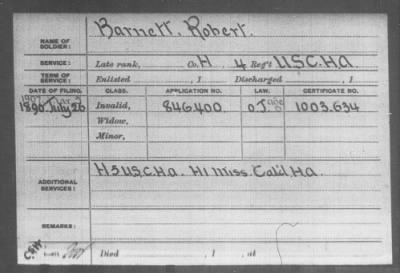 NAME OF SOLDIER: Barnett, Robert.
SERVICE: Late rank, Co. H 4 Reg't U.S.C.H.A.
TERM OF SERVICE: Enlisted , 1 Discharged , 1
DATE OF FILING. CLASS. APPLICATION NO. LAW. CERTIFICATE NO.
1890 July 26 Invalid, 846.400 1003.634
Widow,
Minor,
ADDITIONAL SERVICES: H 3 U.S.C.H.a. H 1 Miss. Cal'd H.a.
REMARKS:
C.S.W.
Died , 1 , at